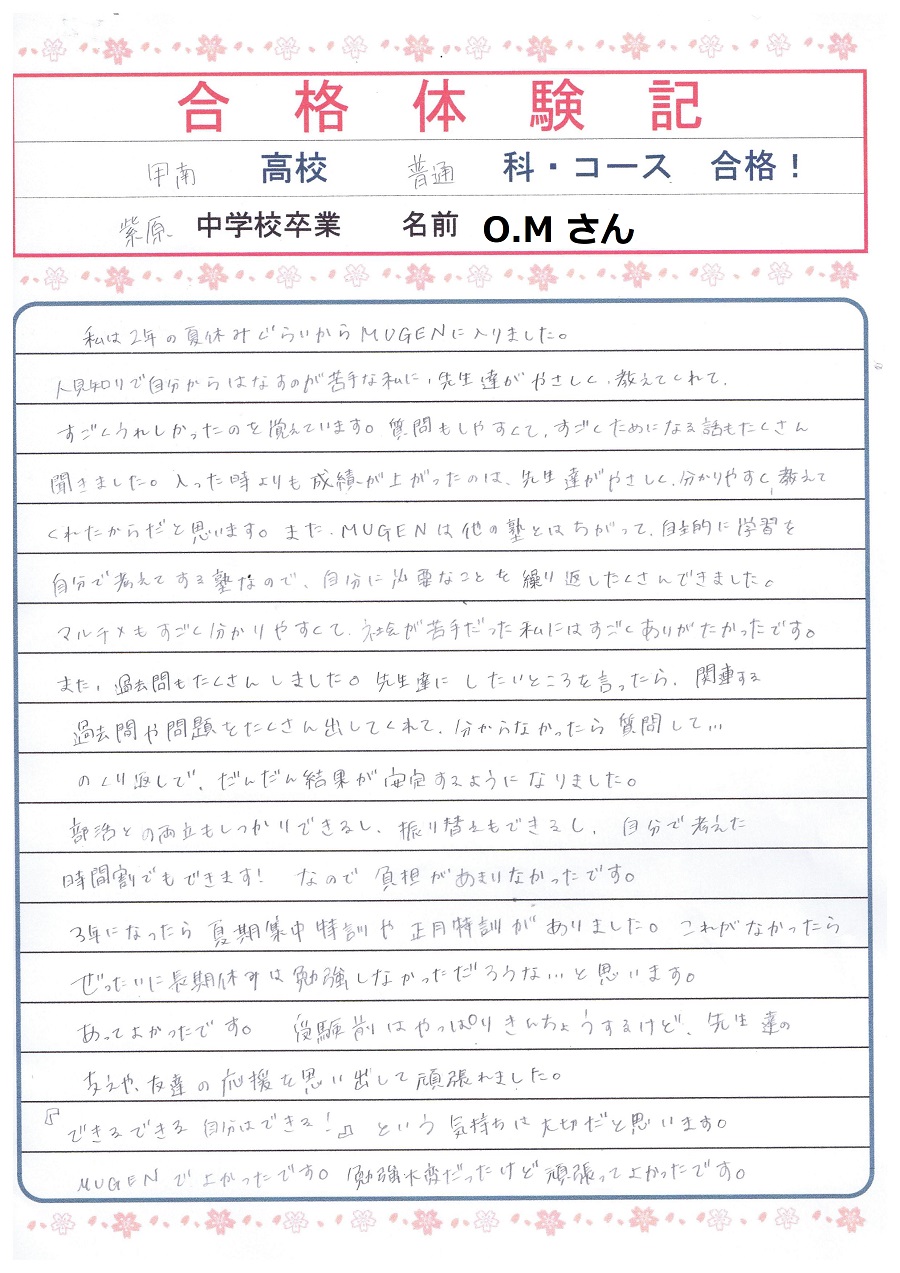 合格体験記
甲南 高校 普通 科・コース 合格！
紫原 中学校卒業 名前 O.M さん
私は2年の夏休みぐらいからMUGENに入りました。
人見知りで自分からはなすのが苦手な私に、先生達がやさしく、教えてくれて、
すごくうれしかったのを覚えています。質問もしやすくて、すごくためになる話もたくさん
聞きました。入った時よりも成績が上がったのは、先生達がやさしく、分かりやすく教えて
くれたからだと思います。また、MUGENは他の塾とはちがって、自主的に学習を
自分で考えてする塾なので、自分に必要なことを繰り返したくさんできました。
マルチメもすごく分かりやすくて、社会が苦手だった私にはすごくありがたかったです。
また、過去問もたくさんしました。先生達にしたいところを言ったら、関連する
過去問や問題をたくさん出してくれて、分からなかったら質問して…
のくり返しで、だんだん結果が安定するようになりました。
部活との両立もしっかりできるし、振り替えもできるし、自分で考えた
時間割でもできます! なので負担があまりなかったです。
3年になったら夏期集中特訓や正月特訓がありました。これがなかったら
ぜったいに長期休みは勉強しなかっただろうな…と思います。
あってよかったです。 受験前はやっぱりきんちょうするけど、先生達の
支えや、友達の応援を思い出して頑張れました。
『できるできる 自分はできる!』という気持ちは大切だと思います。
MUGENでよかったです。勉強大変だったけど頑張ってよかったです。